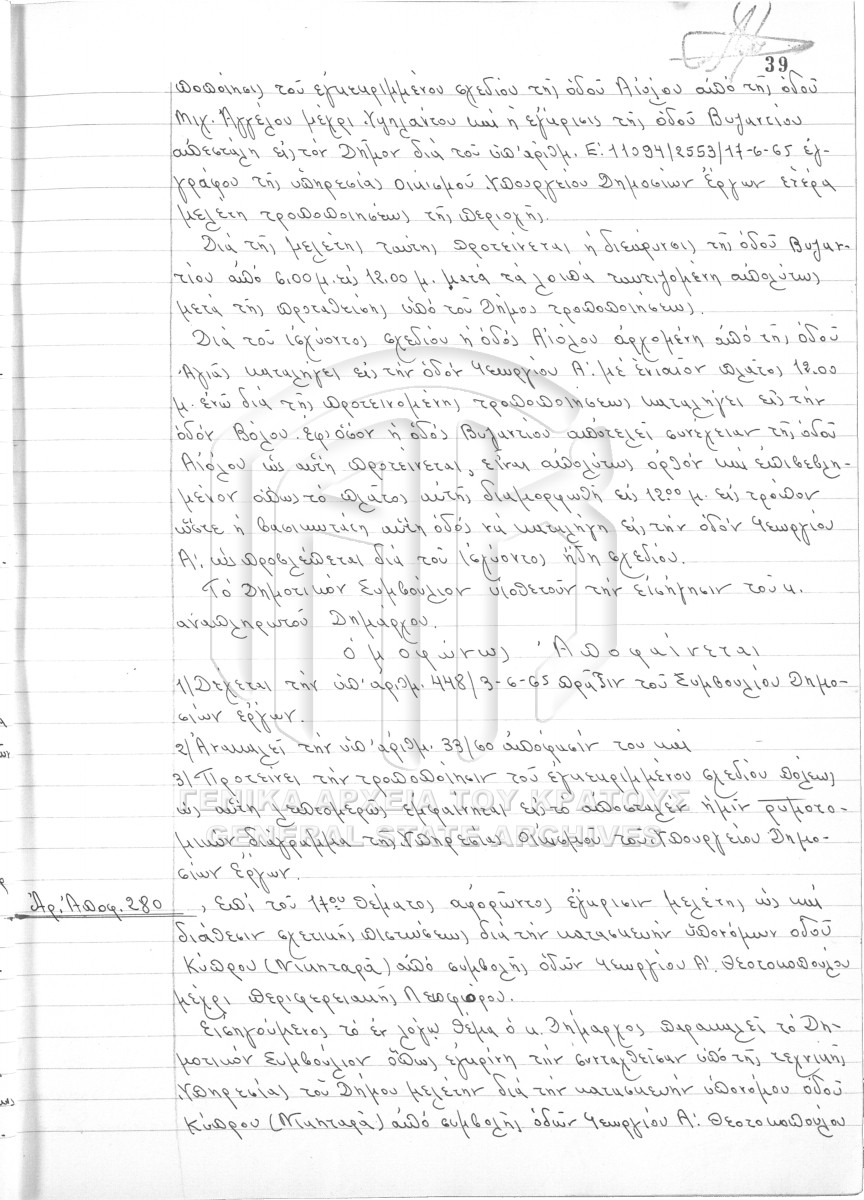 39
ποποίησις τοῦ ἐγκεκριμμένου σχεδίου τῆς ὁδοῦ Αἰόλου ἀπὸ τῆς ὁδοῦ
Μιχ. Ἀγγέλου μέχρι Ὑψηλάντου καὶ ἡ ἔγκρισις τῆς ὁδοῦ Βυζαντίου
ἀπεστάλη εἰς τὸν Δῆμον διὰ τοῦ ὑπ' ἀριθμ. Ε'. 11094/2553/17-6-65 ἐγ-
γράφου τῆς ὑπηρεσίας οἰκισμοῦ Ὑπουργείου Δημοσίων Ἔργων ἑτέρα
μελέτη τροποποιήσεως τῆς περιοχῆς.
Διὰ τῆς μελέτης ταύτης προτείνεται ἡ διεύρυνσις τῆς ὁδοῦ Βυζαν-
τίου ἀπὸ 6.00 μ. εἰς 12.00 μ. κατὰ τὰ λοιπὰ ταυτιζομένη ἀπολύτως
μετὰ τῆς προταθείσης ὑπὸ τοῦ Δήμος τροποποιήσεως.
Διὰ τοῦ ἰσχύοντος σχεδίου ἡ ὁδὸς Αἰόλου ἀρχομένη ἀπὸ τῆς ὁδοῦ
Ἀγιᾶς καταλήγει εἰς τὴν ὁδὸν Γεωργίου Α'. μὲ ἑνιαῖον πλάτος 12.00
μ. ἐνῶ διὰ τῆς προτεινομένης τροποποιήσεως καταλήγει εἰς τὴν
ὁδὸν Βόλου. ἐφ' ὅσον ἡ ὁδὸς Βυζαντίου ἀποτελεῖ συνέχειαν τῆς ὁδοῦ
Αἰόλου ὡς αὕτη προτείνεται, εἶναι ἀπολύτως ὀρθὸν καὶ ἐπιβεβλη-
μένον ὅπως τὸ πλάτος αὐτῆς διαμορφωθῇ εἰς 12οο μ. εἰς τρόπον
ὥστε ἡ βασικωτάτη αὕτη ὁδὸς νὰ καταλήγῃ εἰς τὴν ὁδὸν Γεωργίου
Α'. ὡς προβλέπεται διὰ τοῦ ἰσχύοντος ἤδη σχεδίου.
Τὸ Δημοτικὸν Συμβούλιον υἱοθετοῦν τὴν εἰσήγησιν τοῦ κ.
ἀναπληρωτοῦ Δημάρχου.
ὁμοφώνως Ἀποφαίνεται
1/ Δέχεται τὴν ὑπ' ἀριθμ. 448/3-6-65 πρᾶξιν τοῦ Συμβουλίου Δημο-
σίων ἔργων.
2/ Ἀνακαλεῖ τὴν ὑπ' ἀριθμ. 33/60 ἀπόφασίν του καὶ
3/ Προτείνει τὴν τροποποίησιν τοῦ ἐγκεκριμμένου σχεδίου πόλεως
ὡς αὕτη λεπτομερῶς ἐμφαίνηται εἰς τὸ ἀποσταλὲν ἡμῖν ρυμοτο-
μικὸν διάγραμμα τῆς Ὑπηρεσίας Οἰκισμοῦ τοῦ Ὑπουργείου Δημο-
σίων Ἔργων.
Ἀρ. Ἀποφ. 280 , Ἐπὶ τοῦ 17ου θέματος ἀφορῶντος ἔγκρισιν μελέτης ὡς καὶ
διάθεσιν σχετικῆς πιστώσεως διὰ τὴν κατασκευὴν ὑπονόμων ὁδοῦ
Κύπρου (Νικηταρᾶ) ἀπὸ συμβολῆς ὁδῶν Γεωργίου Α'. Θεοτοκοπούλου
μέχρι περιφερειακῆς Λεωφόρου.
Εἰσηγούμενος τὸ ἐν λόγῳ θέμα ὁ κ. Δήμαρχος παρακαλεῖ τὸ Δη-
μοτικὸν Συμβούλιον ὅπως ἐγκρίνῃ τὴν συνταχθεῖσαν ὑπὸ τῆς τεχνικῆς
Ὑπηρεσίας τοῦ Δήμου μελέτην διὰ τὴν κατασκευὴν ὑπονόμου ὁδοῦ
Κύπρου (Νικηταρᾶ) ἀπὸ συμβολῆς ὁδῶν Γεωργίου Α'. Θεοτοκοπούλου
ΓΕΝΙΚΑ ΑΡΧΕΙΑ ΤΟΥ ΚΡΑΤΟΥΣ
GENERAL STATE ARCHIVES